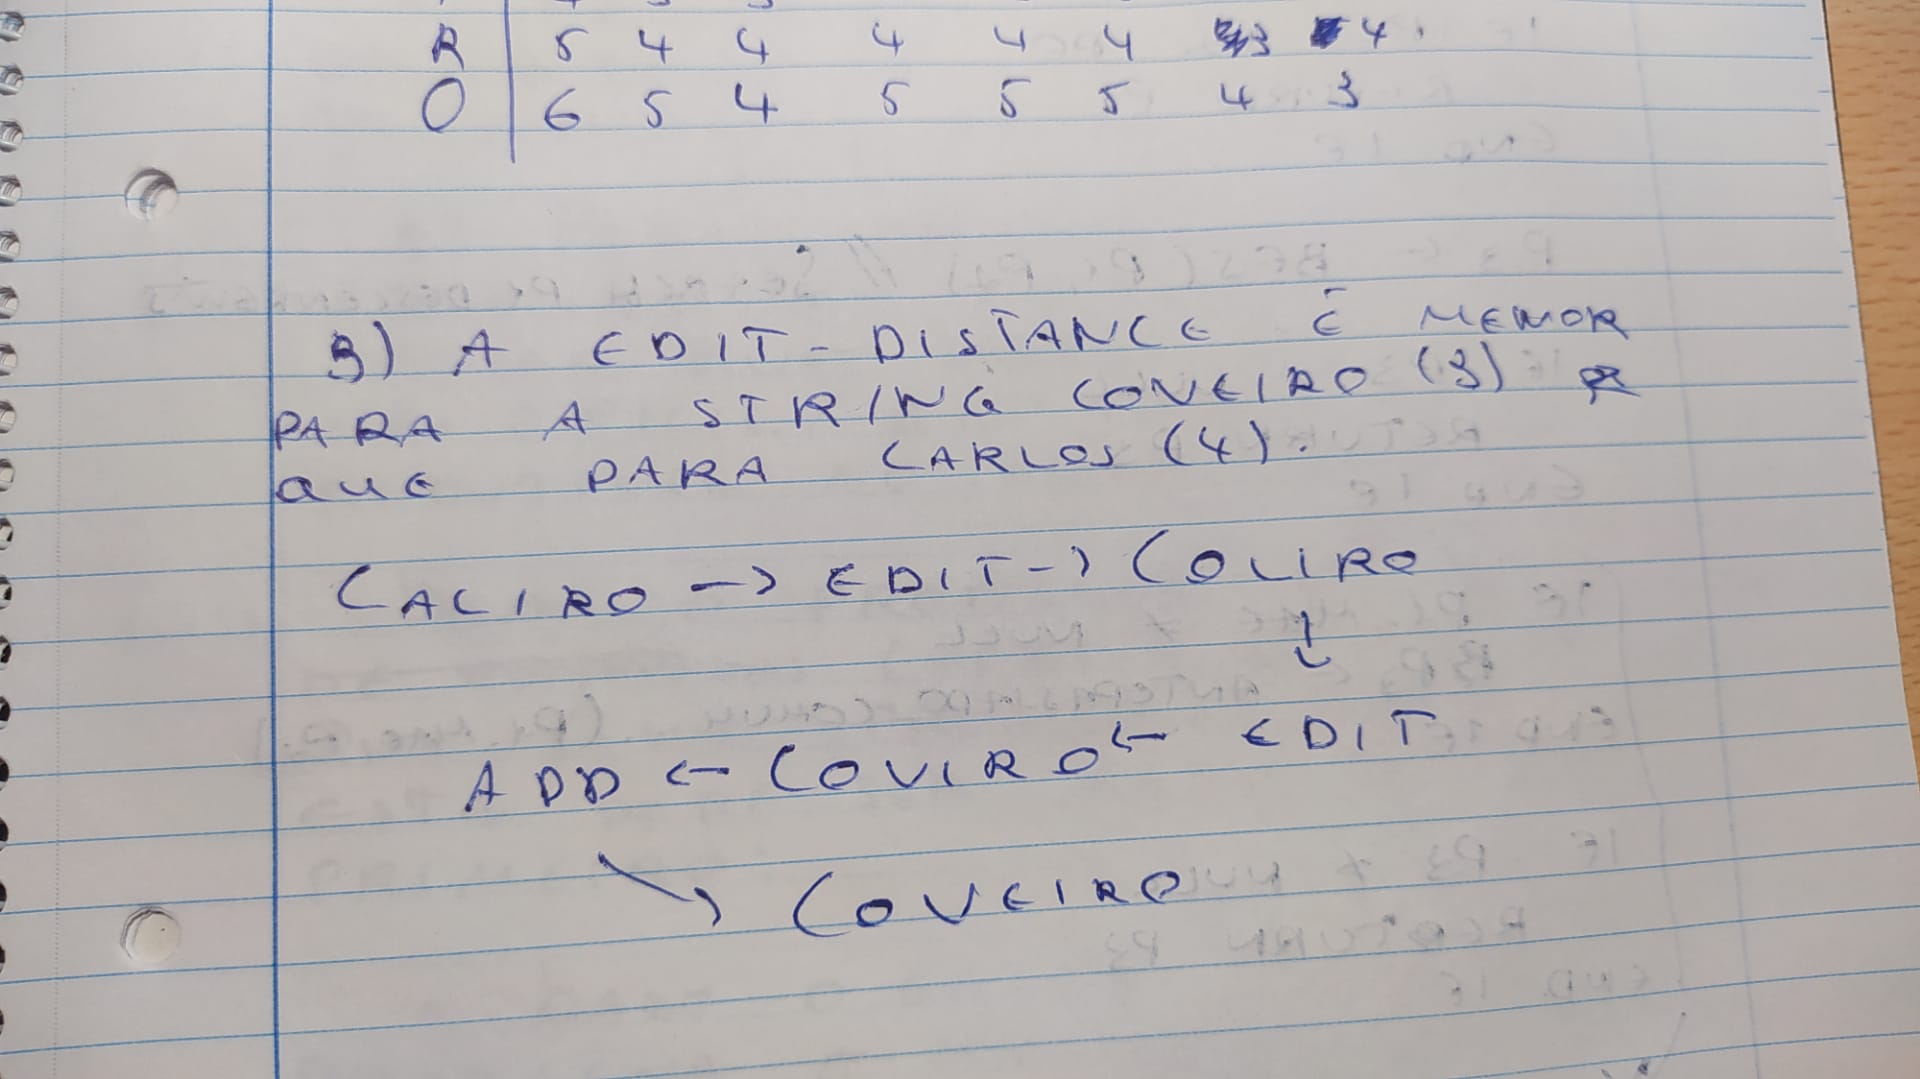 R | 5 4 4 4 4 4 3 4
O | 6 5 4 5 5 5 4 3
3) A EDIT-DISTANCE É MENOR
PARA A STRING COVEIRO (3)
QUE PARA CARLOS (4).
CALIRO -> EDIT -> COLIRO
↓
ADD <- COVIRO <- EDIT
↘ COVEIRO